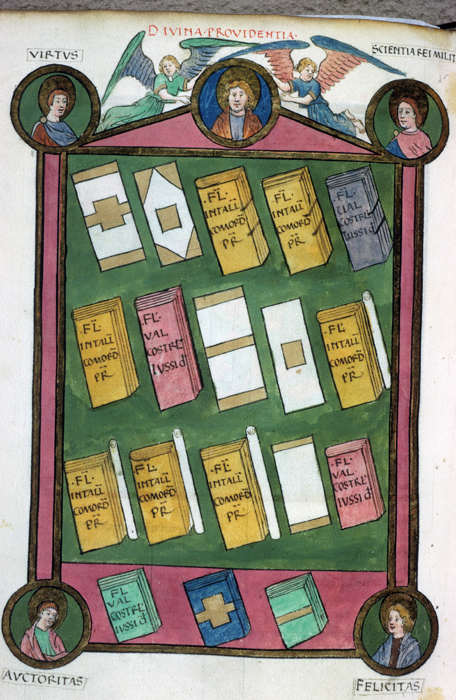 DIVINA·PROVIDENTIA·
VIRTVS
SCIENTIA REI MILIT
·FL·
INTALL
COMORD
PR
·FL·
INTALL
COMORD
PR
·FL·
VAL
COSTRL
IUSSI d
·FL·
INTALL
COMORD
PR
·FL·
VAL
COSTRL
IUSSI d
·FL·
INTALL
COMORD
PR
·FL·
INTALL
COMORD
PR
·FL·
INTALL
COMORD
PR
·FL·
INTALL
COMORD
PR
·FL·
VAL
COSTRL
IUSSI d
FL
VAL
COSTRL
IUSSI d
AVCTORITAS
FELICITAS